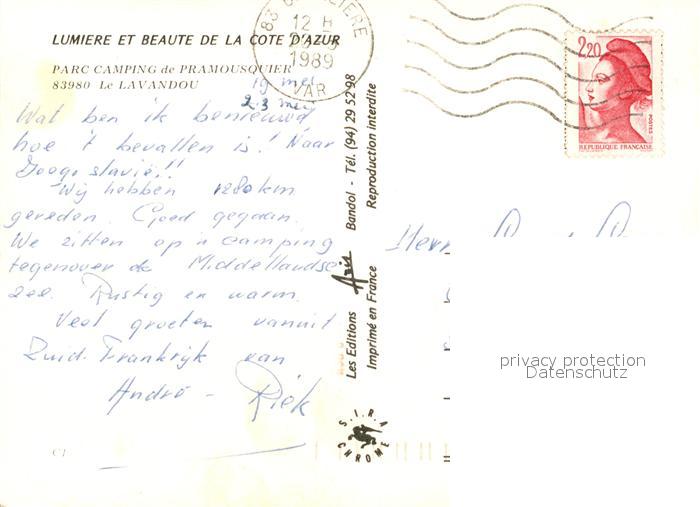 LUMIERE ET BEAUTE DE LA COTE D'AZUR
PARC CAMPING de PRAMOUSQUIER
83980 Le LAVANDOU
19 mei
23 mei
Wat ben ik benieuwd
hoe 't bevallen is! Naar
Joego slavië!!
Wij hebben 1280 km
gereden. Goed gegaan.
We zitten op 'n camping
tegenover de Middellandse
zee. Rustig en warm.
Veel groeten vanuit
Zuid-Frankrijk van
André - Riek
C1
Les Editions Aris Bandol - Tél. (94) 29 52 98
Imprimé en France Reproduction interdite
S.I.R.A
CHROME
83
12 H
1989
VAR
2,20
POSTES
REPUBLIQUE FRANÇAISE
Herrn
privacy protection
Datenschutz